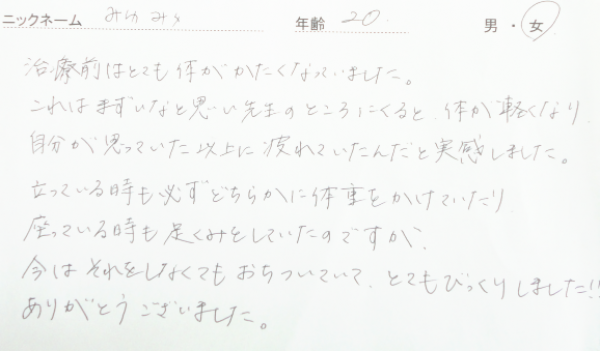 ニックネーム みゆみゆ 年齢 20 男 ・ 女
治療前はとても体がかたくなっていました。
これはまずいなと思い先生のところにくると、体が軽くなり、
自分が思っていた以上に疲れていたんだと実感しました。
立っている時も必ずどちらかに体重をかけていたり
座っている時も足くみをしていたのですが、
今はそれをしなくてもおちついていて、とてもびっくりしました!!
ありがとうございました。